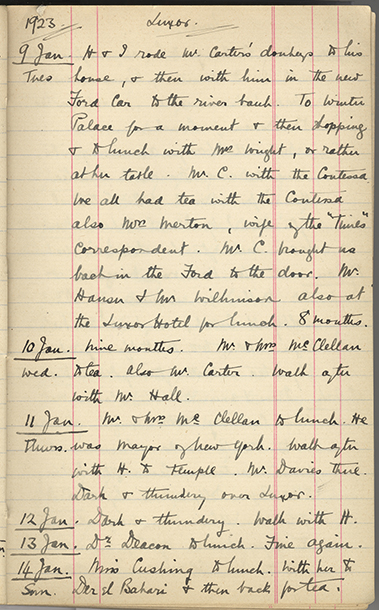 1923 Luxor.
9 Jan. H & I rode Mr Carter's donkeys to his
Tues house, & then with him in the new
Ford Car to the river bank. To Winter
Palace for a moment & then shopping
& to lunch with Mrs Wright, or rather
at her table. Mr. C. with the Contessa
We all had tea with the Contessa
also Mrs Merton, wife of the "Times"
Correspondent. Mr. C. brought us
back in the Ford to the door. Mr.
Hauser & Mr Wilkinson also at
the Luxor Hotel for lunch. 8 mouths.
10 Jan. Nine mouths. Mr. & Mrs Mc Clellan
Wed. to tea. also Mr. Carter. Walk after
with Mr. Hall.
11 Jan. Mr. & Mrs Mc Clellan to lunch. He
Thurs. was Mayor of New York. Walk after
with H. to Temple. Mr. Davis there.
Dark & thundery over Luxor.
12 Jan. Dark & thundery. Walk with H.
13 Jan. Dr. Deacon to lunch. Fine again.
14 Jan. Miss Cushing to lunch. With her to
Sun. Der el Bahari & then back for tea.